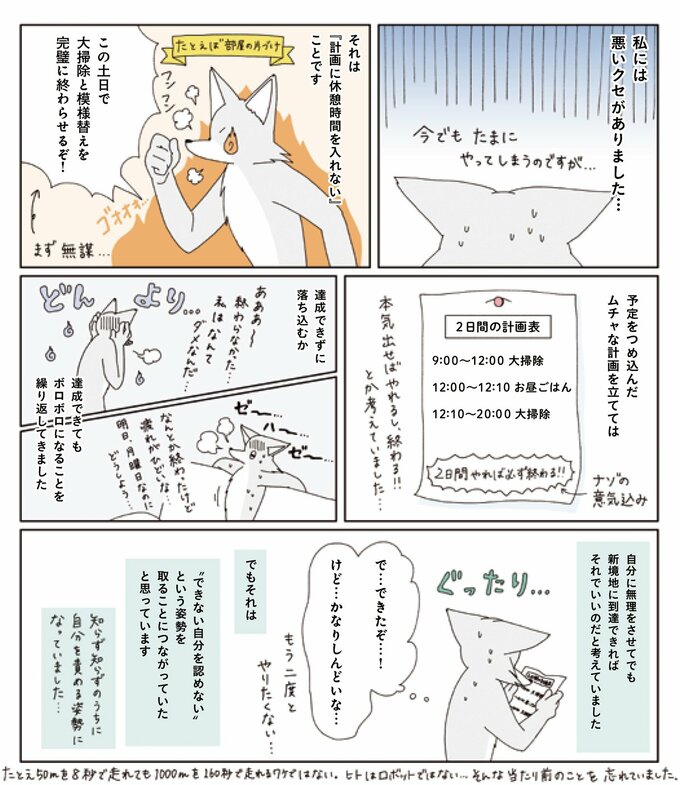 私には
悪いクセがありました…
今でも たまに
やってしまうのですが…
それは
『計画に休憩時間を入れない』
ことです
たとえば 部屋の片づけ
フンフン
この土日で
大掃除と模様替えを
完璧に終わらせるぞ！
ゴォォォ…
まず 無謀…
予定をつめ込んだ
ムチャな計画を立てては
2日間の計画表
9:00～12:00 大掃除
12:00～12:10 お昼ごはん
12:10～20:00 大掃除
2日間やれば必ず終わる!!
ナゾの
意気込み
本気出せばやれるし、終わる!!
とか考えていました…
達成できずに
落ち込むか
どんより…
あああ～
終わらなかった…
私はなんて
ダメなんだ…
達成できても
ボロボロになることを
繰り返してきました
ゼー…
ハー…
ゼー…
なんとか終わったけど
疲れがひどいな…
明日、月曜日なのに
どうしよう…
自分に無理をさせてでも
新境地に到達できれば
それでいいのだと考えていました
ぐったり…
で…できたぞ…！
けど…かなりしんどいな…
もう二度と
やりたくない…
でもそれは
“できない自分を認めない”
という姿勢を
取ることにつながっていた
と思っています
知らず知らずのうちに
自分を責める姿勢に
なっていました…
たとえ50mを8秒で走れても1000mを160秒で走れるワケではない。ヒトはロボットではない…そんな当たり前のことを 忘れていました。